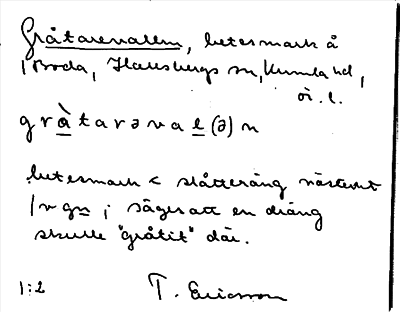 Gråtarevallen, betesmark å
Boda, Hallsbergs sn, Kumla hd,
ör. l.
g r à t a r ə v a l (ə) n
betesmark < slåtteräng
; säges att en dräng
skulle "gråtit" där.
1:2 T. Ericsson